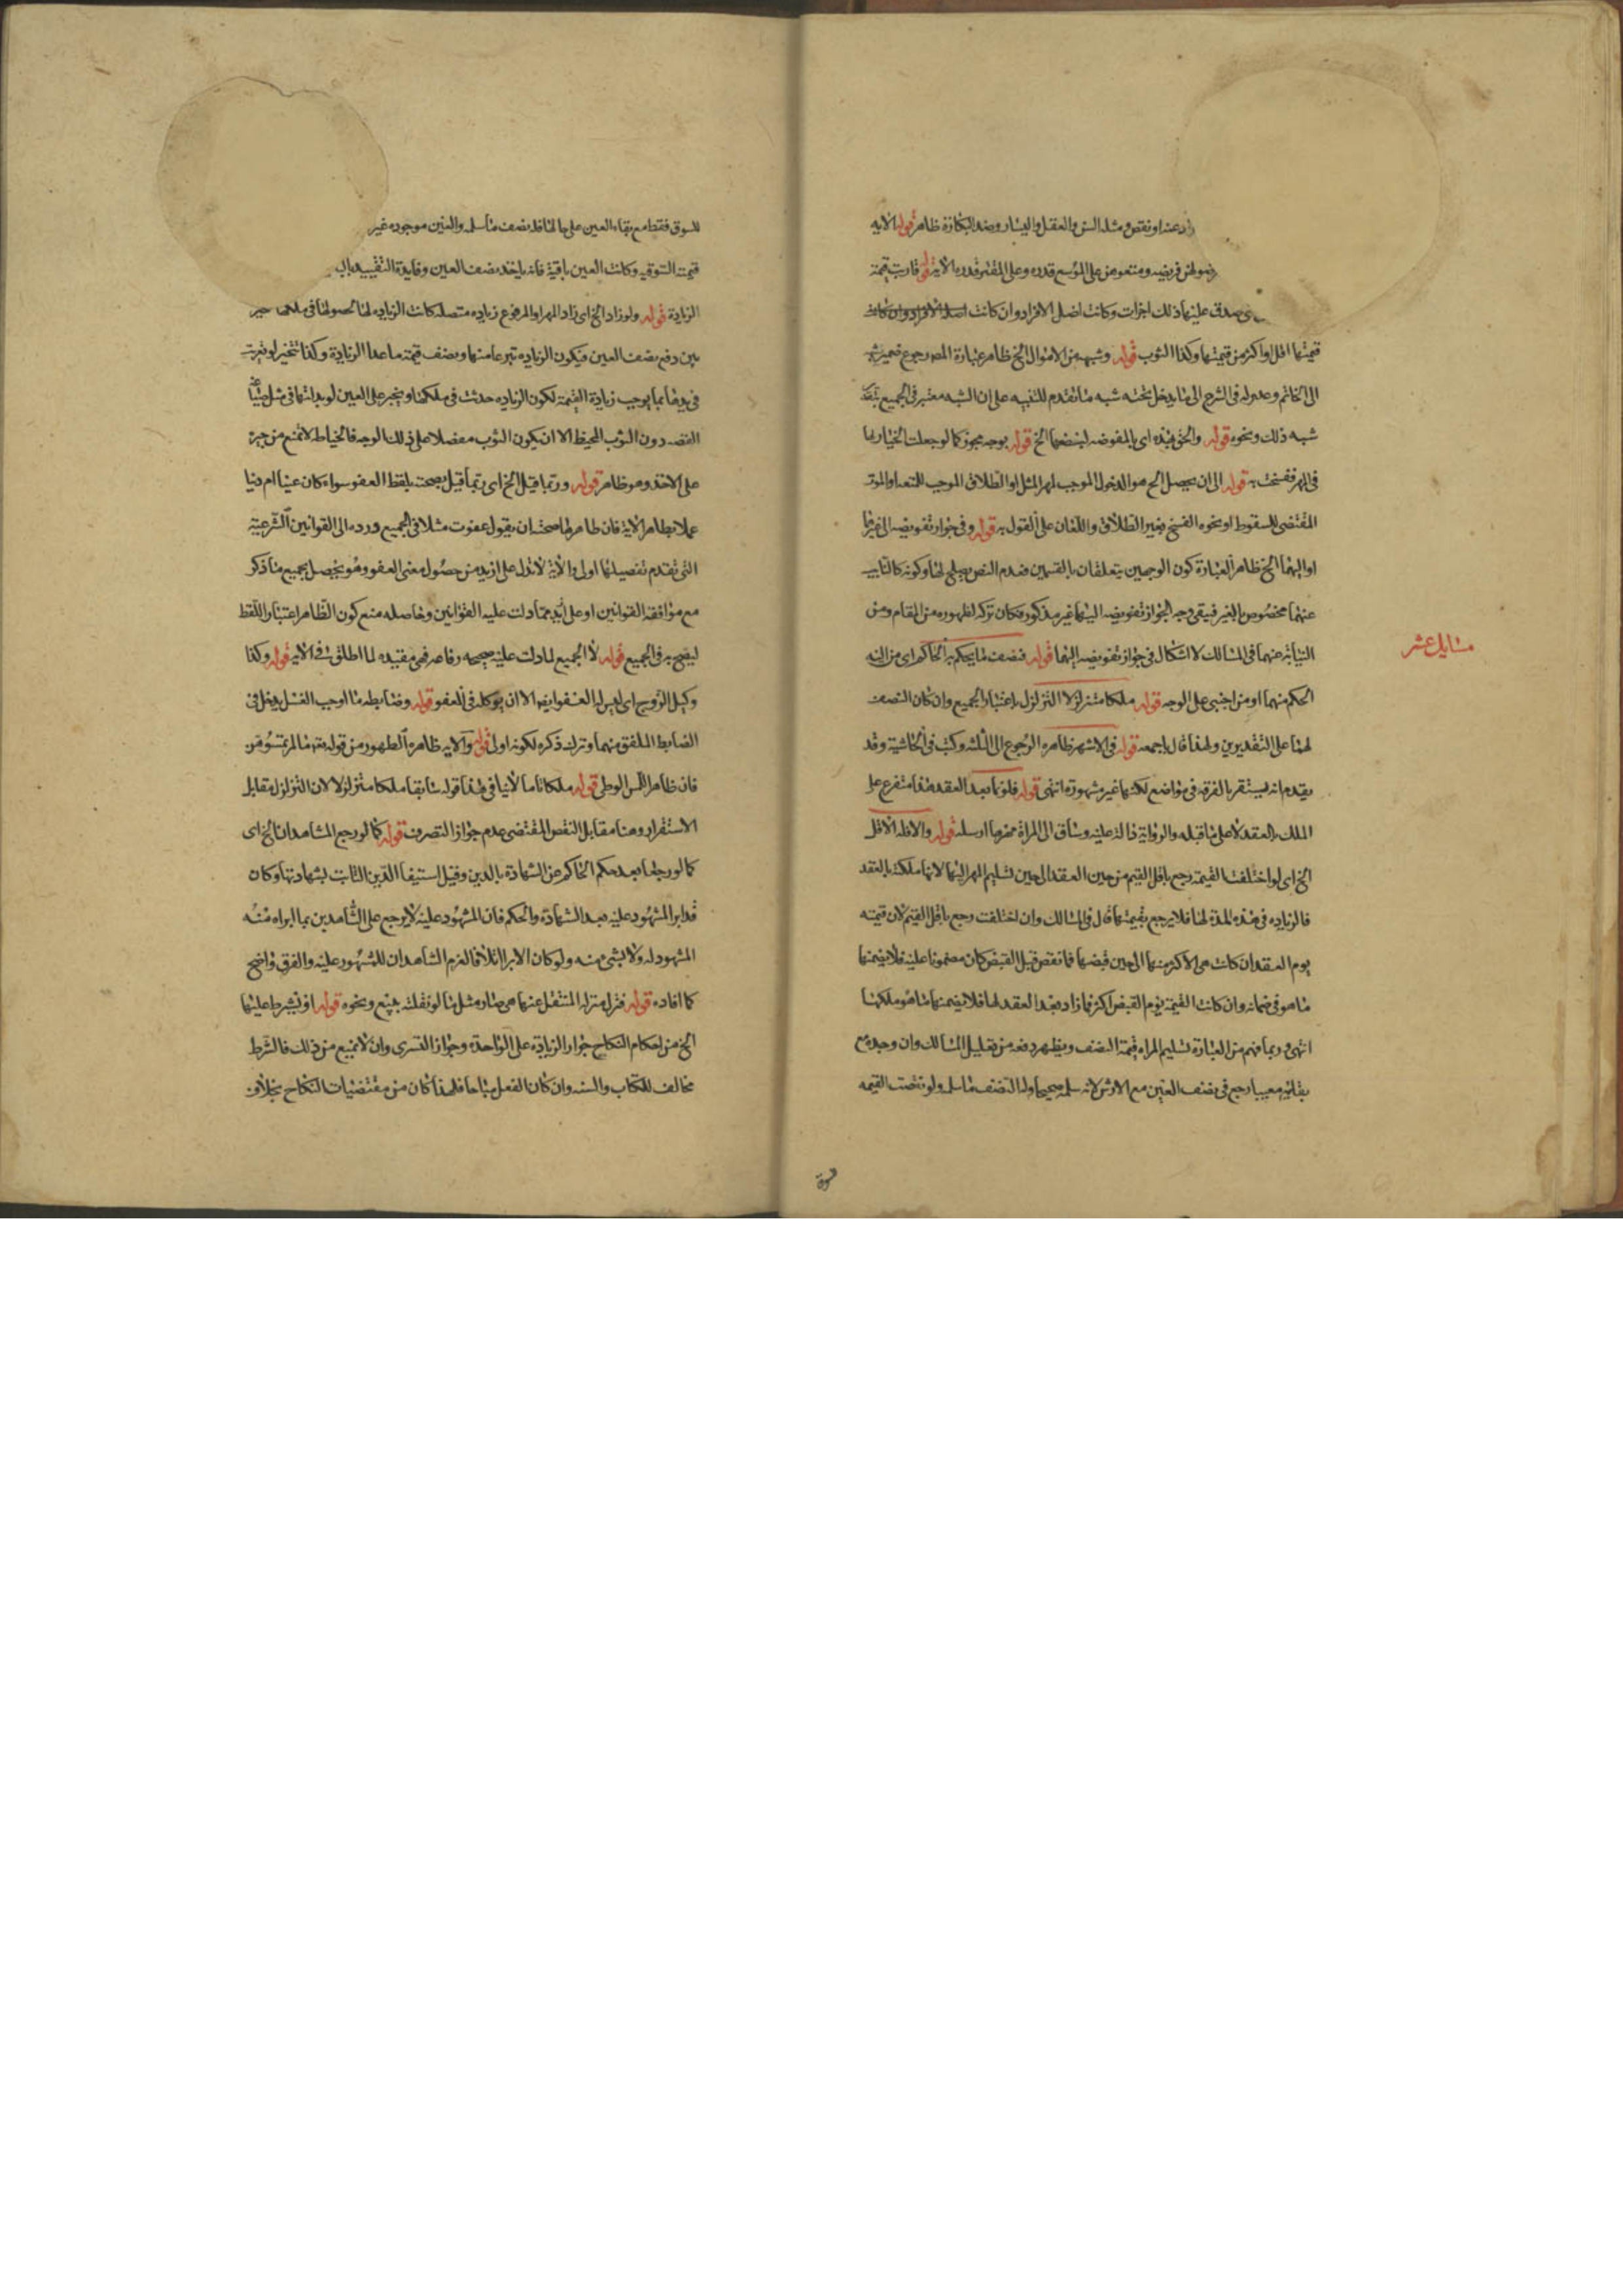 او نقص ومثله السن والعقل واليسار وضد البكارة ظاهر قوله الآية
لهن فريضه ومتعوهن على الموسع قدره وعلى المقتر قدره الآية قوله قاربت قيمة
صدق عليها ذلك اجزأت وكانت افضل الافراد وان كانت
قيمتها اقل او اكثر من قيمتها وكذا الثوب قوله وشبهه من الاموال الخ ظاهر عبارة المص رجوع ضمير شبهه
الى الخاتم وعدوله فى الشرح الى ما يدخل تحته شبه ما تقدم للتنبيه على ان الشبه معتبر فى الجميع
شبه ذلك ونحوه قوله والحق بهذه اى بالمفوضه لبضعها الخ قوله بوجه مجوز كما لو جعلت الخيار لها
فى المهر ففسخت به قوله الى ان يحصل الخ هو الدخول الموجب لمهر المثل او الطلاق الموجب للمتعه او الموت
المقتضى للسقوط او نحوه الفسخ بغير الطلاق واللعان على القول به قوله وفى جواز تفويضه الى غيرها
او اليهما الخ ظاهر العبارة كون الوجهين يتعلقان بالقسمين فعدم النص يصلح لهما وكونه كالنايب
عنهما مخصوص بالغير فيبقى وجه الجواز تفويضه اليهما غير مذكور فكان تركه لظهوره من المقام ومن
النيابة عنهما فى المسالك لا اشكال فى جواز تفويضه اليهما قوله فنصف ما يحكم به الحاكم اى من اليه
مسايل عشر
الحكم منهما او من اجنبى على الوجه قوله ملكا متزلزلا التزلزل باعتبار الجميع وان كان النصف
لها على التقديرين ولهذا قال باجمعه قوله فى الاشهر ظاهره الرجوع الى الثلثه وكتب فى الحاشية وقد
يقدم انه يستقر بالفرقه فى مواضع لكنها غير مشهورة انتهى قوله فلو نما بعد العقد هذا متفرع على
الملك بالعقد لا على ما قبله والرواية دالة عليه وساق الى المرأة مهرها ارسله قوله والا فله الاقل
الخ اى لو اختلفت القيمة رجع باقل القيم من حين العقد الى حين تسليم المهر اليها لانها ملكته بالعقد
فالزياده فى هذه المدة لها فلا يرجع بقيمتها قال فى المسالك وان اختلفت رجع باقل القيم لان قيمته
يوم العقد ان كانت هى الاكثر منها الى حين قبضها فما نقص قبل القبض كان مضمونا عليه فلا يضمنها
ما هو فى ضمانه وان كانت القيمة يوم القبض اكثر فما زاد بعد العقد لها فلا يضمنها ما هو ملكها
انتهى وربما فهم من العبارة تسليم المراه قيمة النصف ويظهر دفعه من تعليل المسالك وان وجده مع
بقائه معيبا رجع فى نصف العين مع الارش لانه سلمه صحيحا وله النصف ما سلمه ولو نقصت القيمه
للسوق فقط مع بقاء العين على حالها فله نصف ما سلمه والعين موجوده غير
قيمته السوقيه وكانت العين باقية فانه ياخذ نصف العين وفايدة التقييد
الزيادة قوله ولو زاد الخ اى زاد المهر او المدفوع زياده متصله كانت الزياده لها لحصولها فى ملكها
بين دفع نصف العين فيكون الزياده تبرعا منها ونصف قيمة ما عدا الزيادة وكذا تتخير لو تغيرت
فى يدها بما يوجب زيادة القيمة لكون الزياده حدثت فى ملكها ويجبر على العين لو بذلتها فى مثل
الفضه دون الثوب المخيط الا ان يكون الثوب مفصلا على ذلك الوجه فالخياط لا تمنع من جبره
على الاخذ وهو ظاهر قوله وربما قيل الخ اى ربما قيل بصحته بلفظ العفو سواء كان عينا ام دينا
عملا بظاهر الاية فان ظاهرها صحته ان يقول عفوت مثلا فى الجميع ورده الى القوانين الشرعية
التى تقدم تفصيلها اولى والاية لا تدل على ازيد من حصول معنى العفو وهو يحصل بجميع ما ذكر
مع موافقة القوانين او على مما دلت عليه القوانين وحاصله منع كون الظاهر اعتبار اللفظ
ليصح به فى الجميع قوله لا الجميع لما دلت عليه صحيحه رفاعه فهى مقيده لما اطلق فى الاية قوله وكذا
وكيل الزوج اى ليس له العفو ايضا الا ان يوكله فى العفو قوله وضابطه ما اوجب الغسل يدخل فى
الضابط الملفق منهما وترك ذكره لكونه اولى قوله والايه ظاهره الظهور من قوله تعالى ما لم تمسوهن
فان ظاهر اللمس الوطى قوله ملكا تاما لا ينافى هذا قوله سابقا ملكا متزلزلا لان التزلزل مقابل
الاستقرار وهنا مقابل النقص المقتضى عدم جواز التصرف قوله كما لو رجع الشاهدان الخ اى
كما لو رجعا بعد حكم الحاكم عن الشهادة بالدين وقبل استيفا الدين الثابت بشهادتهما وكان
قد ابرا المشهود عليه بعد الشهادة والحكم فان المشهود عليه لا يرجع على الشاهدين بما ابراه منه
المشهود له ولا بشى منه ولو كان الابرا اتلافا لغرم الشاهدان للمشهود عليه والفرق واضح
كما افاده قوله فنزل منزله المنتقل عنها هى صار مثل ما لو نقلته ببيع ونحوه قوله او تشترط عليها
الخ من احكام النكاح جواز الزيادة على الواحدة وجواز التسرى وان لا تمنع من ذلك فالشرط
مخالف للكتاب والسنه وان كان الفعل مباحا فلهذا كان من مقتضيات النكاح بخلاف